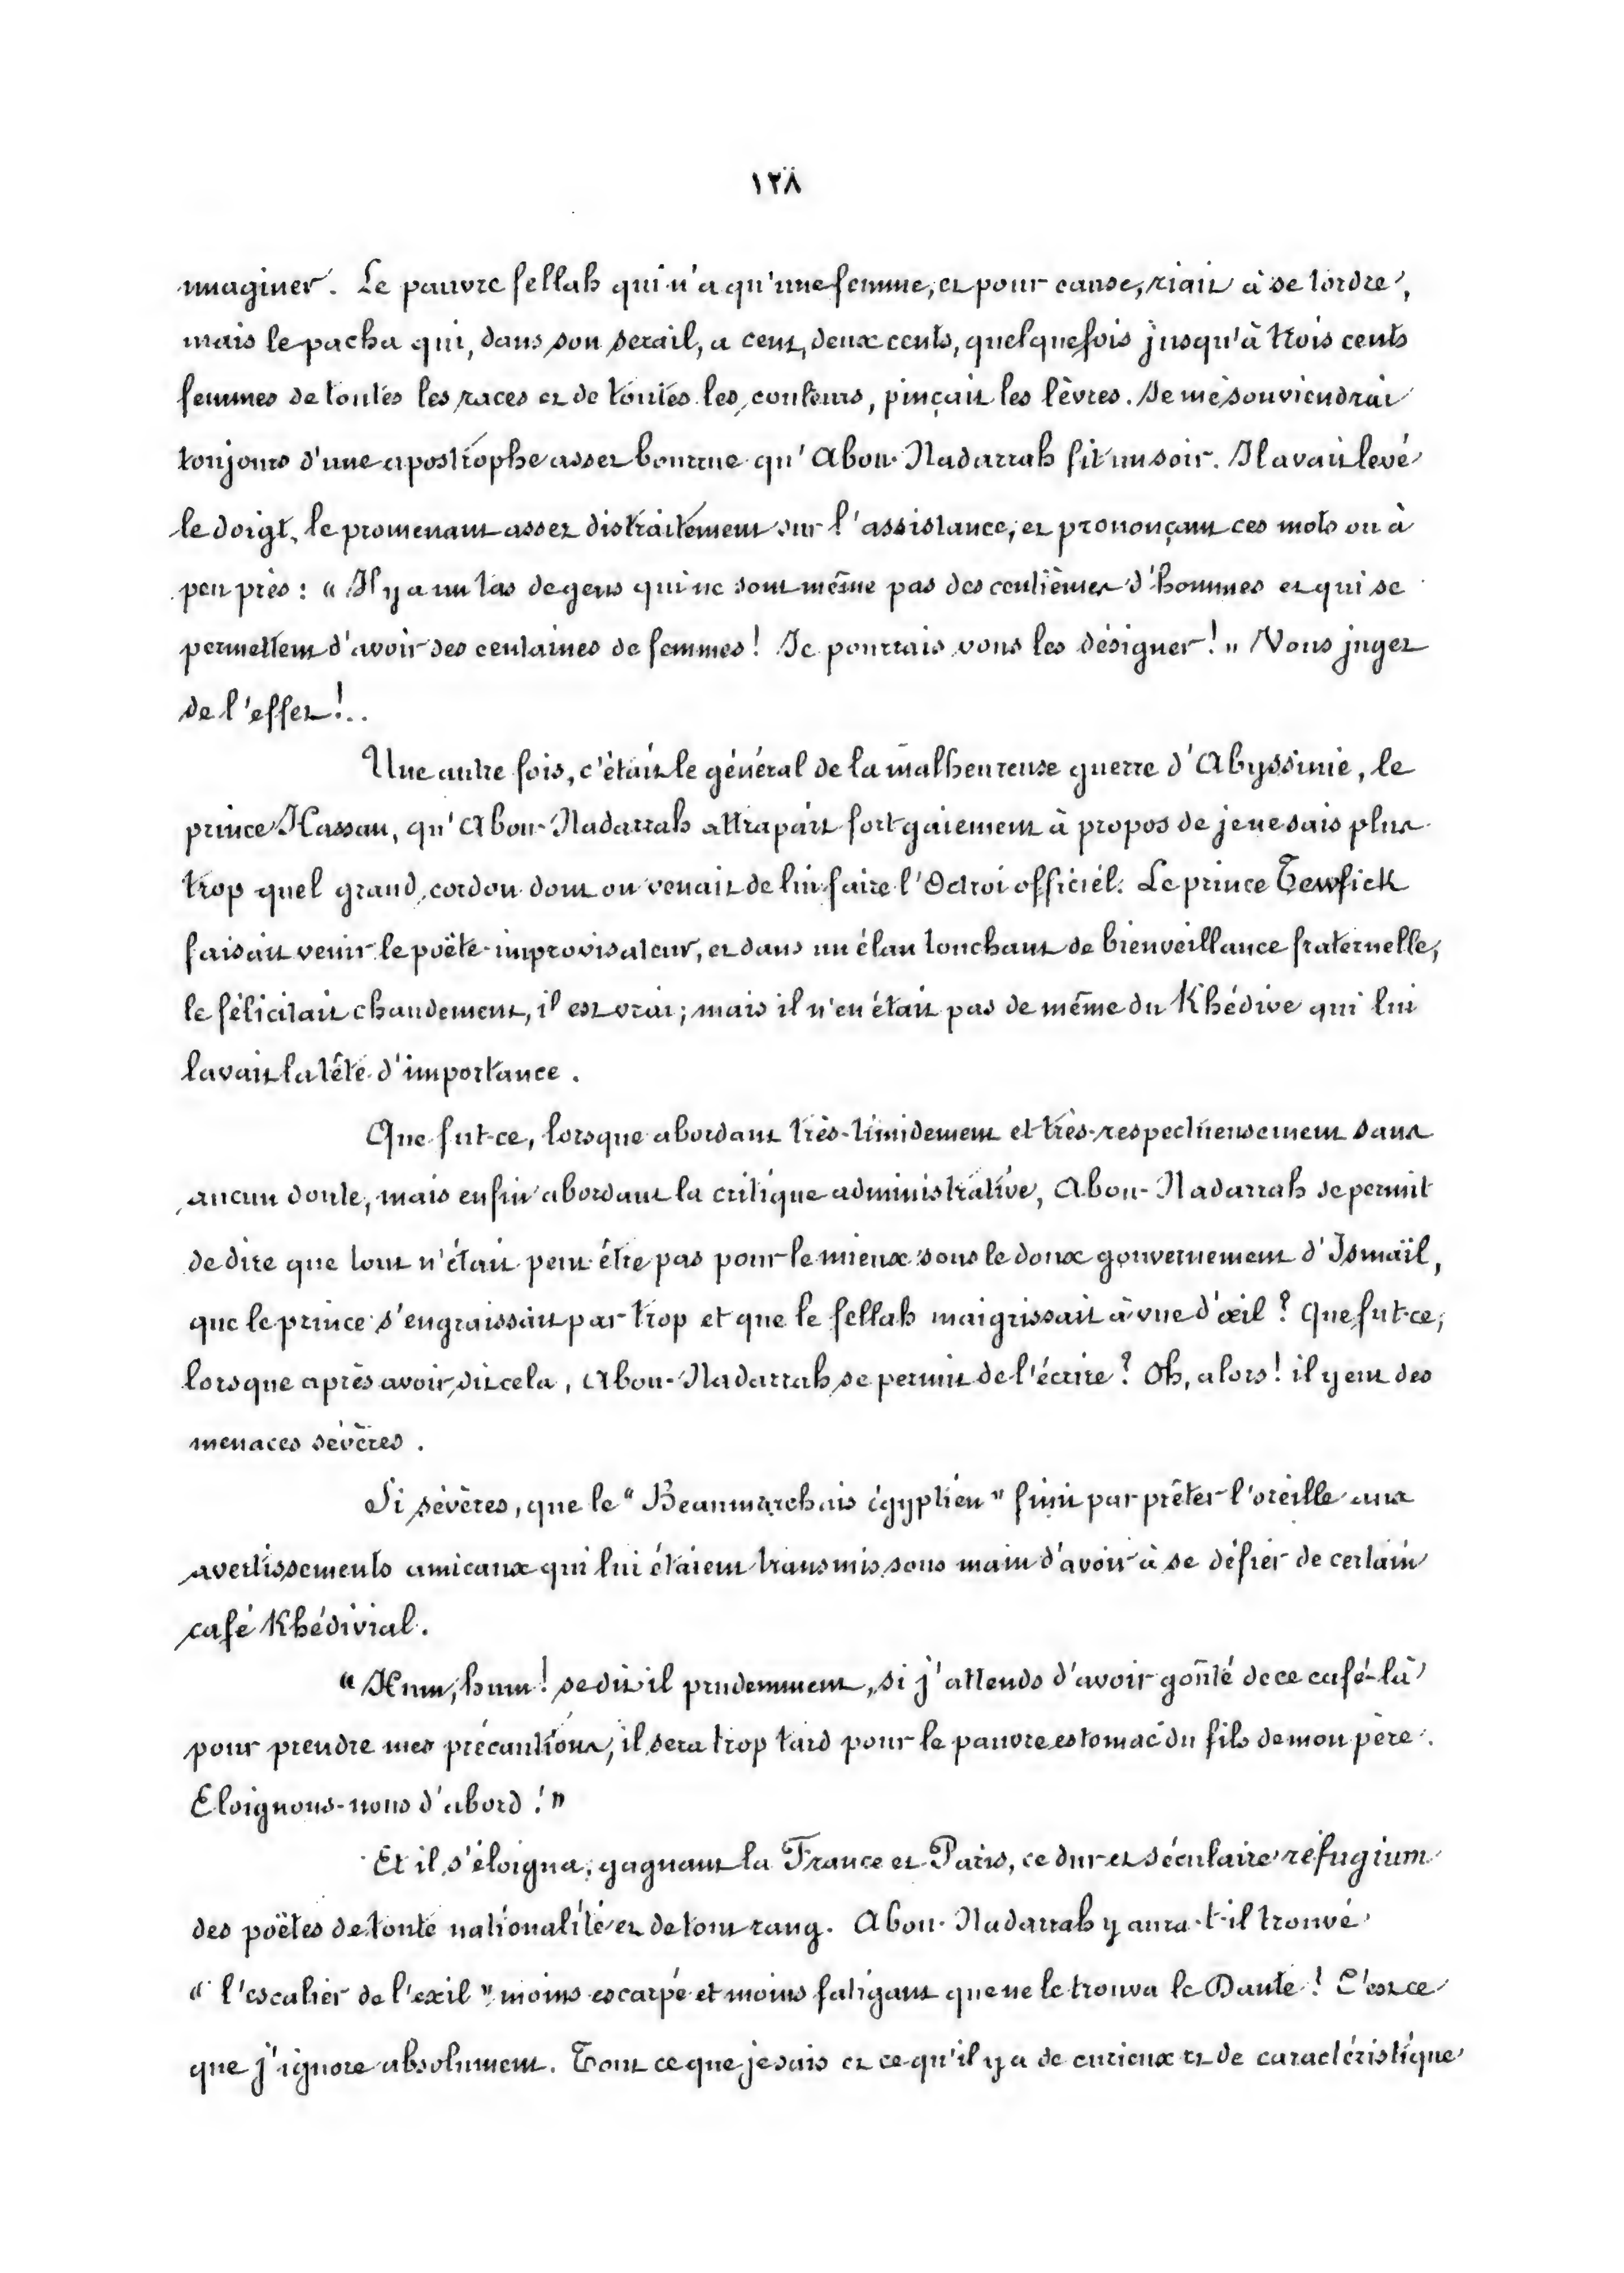 ١٢٨
imaginer. Le pauvre fellah qui n'a qu'une femme, et pour cause, riait à se tordre,
mais le pacha qui, dans son serail, a cent, deux cents, quelquefois jusqu'à trois cents
femmes de toutes les races et de toutes les couleurs, pinçait les lèvres. Je me souviendrai
toujours d'une apostrophe assez bourrue qu'Abou-Nadarrah fit un soir. Il avait levé
le doigt, le promenant assez distraitement sur l'assistance, et prononçant ces mots ou à
peu près : « Il y a un tas de gens qui ne sont même pas des centièmes d'hommes et qui se
permettent d'avoir des centaines de femmes ! Je pourrais vous les désigner ! » Vous jugez
de l'effet !..
Une autre fois, c'était le général de la malheureuse guerre d'Abyssinie, le
prince Hassan, qu'Abou-Nadarrah attrapait fort gaiement à propos de je ne sais plus
trop quel grand cordon dont on venait de lui faire l'Octroi officiel. Le prince Tewfick
faisait venir le poëte-improvisateur, et dans un élan touchant de bienveillance fraternelle,
le félicitait chaudement, il est vrai ; mais il n'en était pas de même du Khédive qui lui
lavait la tête d'importance .
Que fut-ce, lorsque abordant très-timidement et très-respectueusement sans
aucun doute, mais enfin abordant la critique administrative, Abou-Nadarrah se permit
de dire que tout n'était peut-être pas pour le mieux sous le doux gouvernement d'Ismaïl,
que le prince s'engraissait par trop et que le fellah maigrissait à vue d'œil ? Que fut-ce,
lorsque après avoir dit cela, Abou-Nadarrah se permit de l'écrire ? Oh, alors ! il y eut des
menaces sévères .
Si sévères, que le "Beaumarchais égyptien" finit par prêter l'oreille aux
avertissements amicaux qui lui étaient transmis sous main d'avoir à se défier de certain
café Khédivial.
« Hum, hum ! se dit il prudemment, si j'attends d'avoir goûté de ce café-là
pour prendre mes précautions, il sera trop tard pour le pauvre estomac du fils de mon père.
Eloignons-nous d'abord ! »
Et il s'éloigna, gagnant la France et Paris, ce dur et séculaire refugium
des poëtes de toute nationalité et de tout rang. Abou-Nadarrah y aura-t-il trouvé
« l'escalier de l'exil » moins escarpé et moins fatigant que ne le trouva le Dante ? C'est ce
que j'ignore absolument. Tout ce que je sais et ce qu'il y a de curieux et de caractéristique